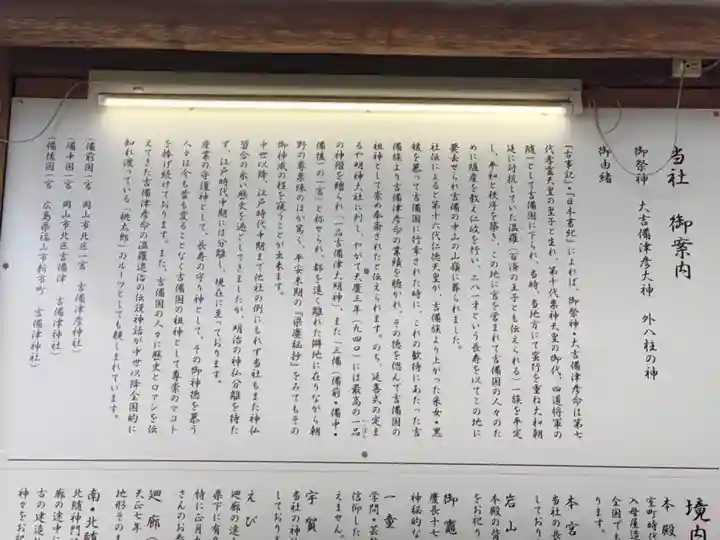 当社　御案内
御祭神　大吉備津彦大神　外八柱の神
御由緒
『古事記』・『日本書紀』によれば、御祭神・大吉備津彦命は第七
代孝霊天皇の皇子と生れ、第十代崇神天皇の御代、四道将軍の
随一として吉備国に下られ、当時、当地方にて蛮行を重ね大和朝
廷に対抗していた温羅（百済の王子とも伝えられる）一族を平定
し、平和と秩序を築き、この地に宮を営まれて吉備国の人々のた
めに殖産を教え仁政を行い、二八一才という長寿を以てこの地に
薨去せられ吉備の中山の山嶺に葬られました。
社伝によると第十六代仁徳天皇が、吉備族より上がった采女・黒
媛を慕って吉備国に行幸された時に、これの歓待にあたった吉
備族より吉備津彦命の業績を聴かれ、その徳を偲んで吉備国の
祖神として崇め奉斎されたと伝えられます。のち、延喜式の定ま
るや明神大社に列し、やがて天慶三年（九四〇）には最高の一品
の神階を贈られ「一品吉備津大明神」また「三備（備前・備中・
備後）の一宮」と称せられ、都を遠く離れた僻地に在りながら朝
野の尊崇殊のほか篤く、平安末期の『梁塵秘抄』をみてもその
御神威の程を窺うことが出来ます。
中世以降、江戸時代中期まで他社の例にもれず当社もまた神仏
習合の永い歴史を過ごしてきましたが、明治の神仏分離を待た
ず、江戸時代中期には分離し、現在に至っております。
産業の守護神として、長寿の守り神として、その御神徳を慕う
人々は今も昔も変ることなく吉備国の祖神として尊崇のマコト
を捧げ続けております。また、吉備国の人々に歴史とロマンを伝
えてきた吉備津彦命の温羅退治の伝説神話が中世以降全国的に
知れ渡っている「桃太郎」のルーツとしても親しまれています。
（備前国一宮　岡山市北区一宮　吉備津彦神社）
（備中国一宮　岡山市北区吉備津　吉備津神社）
（備後国一宮　広島県福山市新市町　吉備津神社）
境内
本殿
室町時代
入母屋造
全国でも
ります。
本宮
当社の長
しており
岩山
本殿の背
をお祀り
御竈
慶長十七
神秘的な
一童
学問・芸
信仰した
えません。
宇賀
当社の神
しており
えび
廻廊の途
県下に有
特に正月
さんのお
廻廊（
天正七年
地形その
南・北随
北随神門
廊の途中
古の建造
神々をお祀